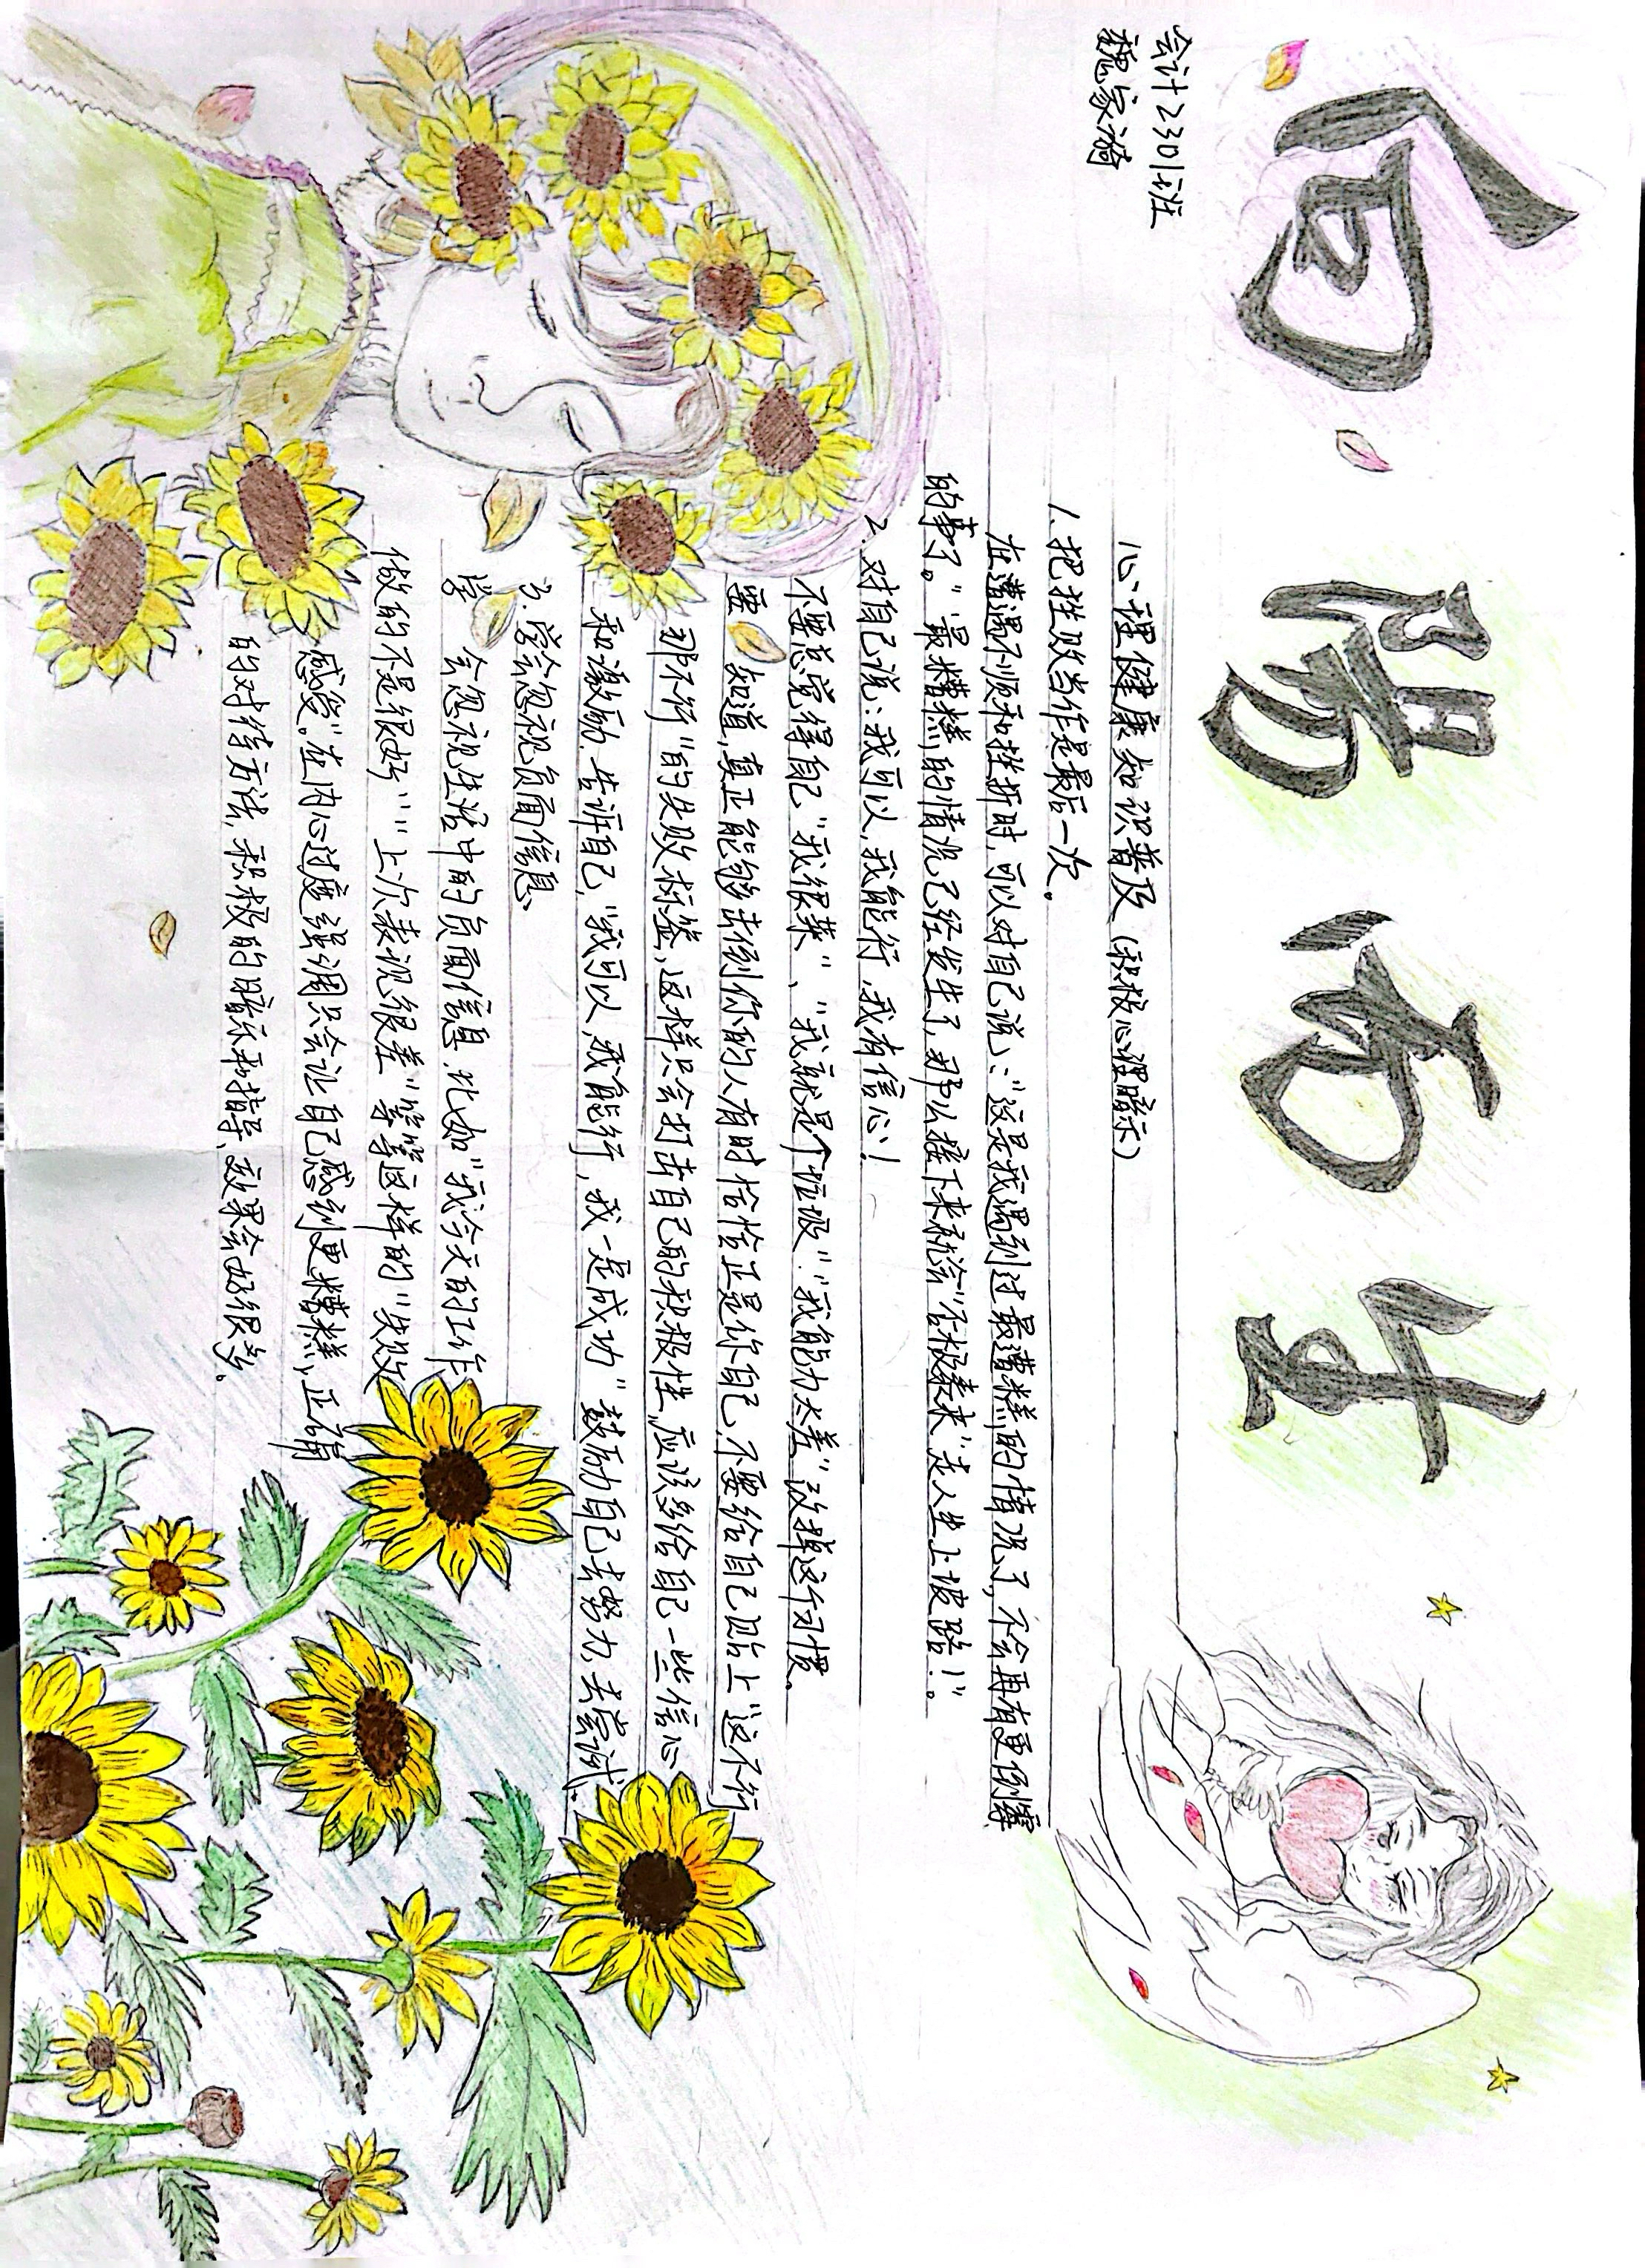 向阳而生
会计2301班
魏家漪
心理健康知识普及（积极心理暗示）
1.把挫败当作是最后一次。
在遭遇不顺和挫折时，可以对自己说：“这是我遇到过最遭糕的情况了，不会再有更倒霉
的事了。”“最糟糕”的情况已经发生了，那么接下来就会“否极泰来”走人生上坡路！”。
2.对自己说：我可以，我能行，我有信心！
不要总觉得自己“我很菜”、“我就是个垃圾”“我能力太差”改掉这个习惯。
要知道，真正能够击倒你的人有时恰恰正是你自己，不要给自己贴上“这不行
那不行”的失败标签，这样只会打击自己的积极性，应该多给自己一些信心
和激励，告诉自己，“我可以，我能行，我一定成功”鼓励自己去努力，去尝试。
3.学会忽视负面信息
学会忽视生活中的负面信息，比如“我今天的工作
做的不是很好”“上次表现很差”等等这样的“失败
感受”。在内心过度强调只会让自己感到更糟糕，正确
的对待方法，积极的暗示和指导，效果会好很多。